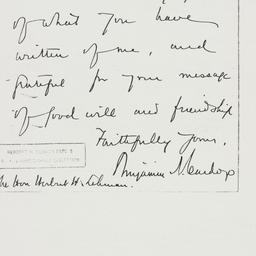 of what you have
written of me, and
grateful for your message
of good will and friendship
Faithfully yours,
Benjamin N. Cardozo
The Hon Herbert H. Lehman.